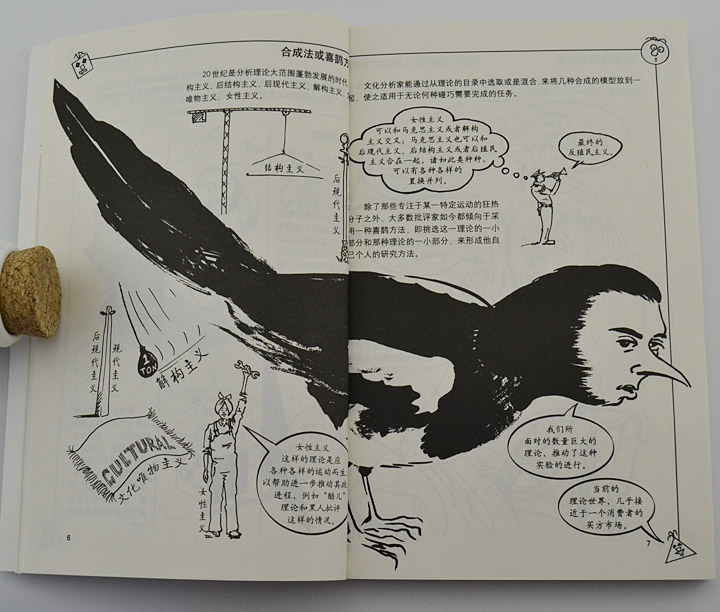 合成法或喜鹊方
20世纪是分析理论大范围蓬勃发展的时代
构主义，后结构主义，后现代主义，解构主义，
唯物主义，女性主义。
结构主义
后现代主义
后现代主义
现代主义
1
TON
解构主义
CULTURAL
文化唯物主义
女性主义
女性主义
这样的理论是应
各种各样的运动而生
以帮助进一步推动其政
进程，例如“酷儿”
理论和黑人批评
这样的情况。
6
文化分析家能通过从理论的目录中选取或是混合，来将几种合成的模型放到一
起，使之适用于无论何种碰巧需要完成的任务。
女性主义
可以和马克思主义或者解构
主义交叉；马克思主义也可以和
后现代主义、后结构主义或者后殖民
主义合在一起，诸如此类种种，
可以有各种各样的
置换并列。
最终的
反殖民主义。
除了那些专注于某一特定运动的狂热
分子之外，大多数批评家如今都倾向于采
用一种喜鹊方法，即挑选这一理论的一小
部分和那种理论的一小部分，来形成他自
己个人的研究方法。
我们所
面对的数量巨大的
理论，推动了这种
实验的进行。
当前的
理论世界，几乎接
近于一个消费者的
买方市场。
7